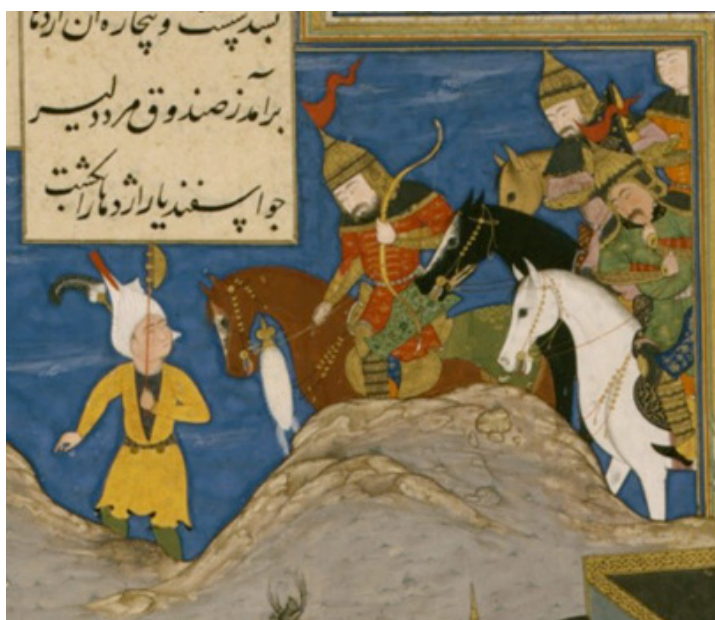 و بیچاره آن اژدها
برآمد ز صندوق مرد دلیر
جو اسفندیار اژدها را بکشت